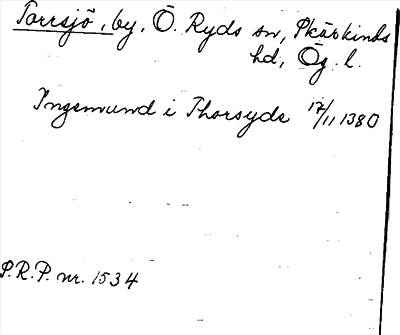 Torrsjö, by, Ö. Ryds sn, Skärkinds
hd, Ög. l.
Ingemund i Thorsyde 17/11 1380
P.R.P. nr. 1534